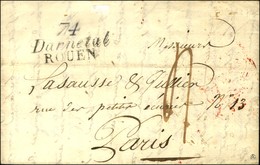 74
Darnetal
ROUEN
Messieurs
Lasausse & Jullien
rue des petites ecuries Nº 13
Paris